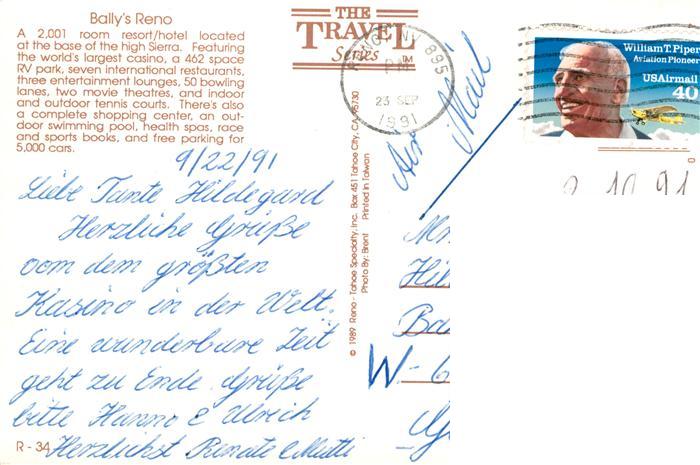 Bally's Reno
A 2,001 room resort/hotel located
at the base of the high Sierra. Featuring
the world's largest casino, a 462 space
RV park, seven international restaurants,
three entertainment lounges, 50 bowling
lanes, two movie theatres, and indoor
and outdoor tennis courts. There's also
a complete shopping center, an out-
door swimming pool, health spas, race
and sports books, and free parking for
5,000 cars.
9/22/91
Liebe Tante Hildegard
Herzliche Grüße
vom dem größten
Kasino in der Welt.
Eine wunderbare Zeit
geht zu Ende. Grüße
bitte Hanno & Ulrich
R - 34 Herzlichst Renate & Mutti
THE
TRAVEL
Series TM
© 1989 Reno - Tahoe Specialty, Inc. Box 451 Tahoe City, CA 95730
Photo By: Brent Printed in Taiwan
RENO, NV 895
PM
23 SEP
1991
Air Mail
William T. Piper
Aviation Pioneer
USAirmail
40
Hil
W-6